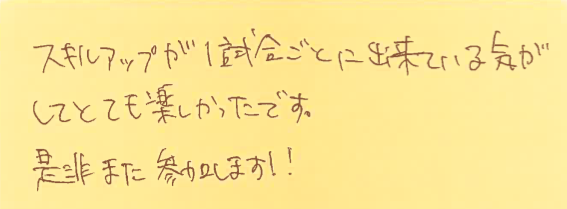 スキルアップが1試合ごとに出来ている気が
してとても楽しかったです。
是非また参加します!!